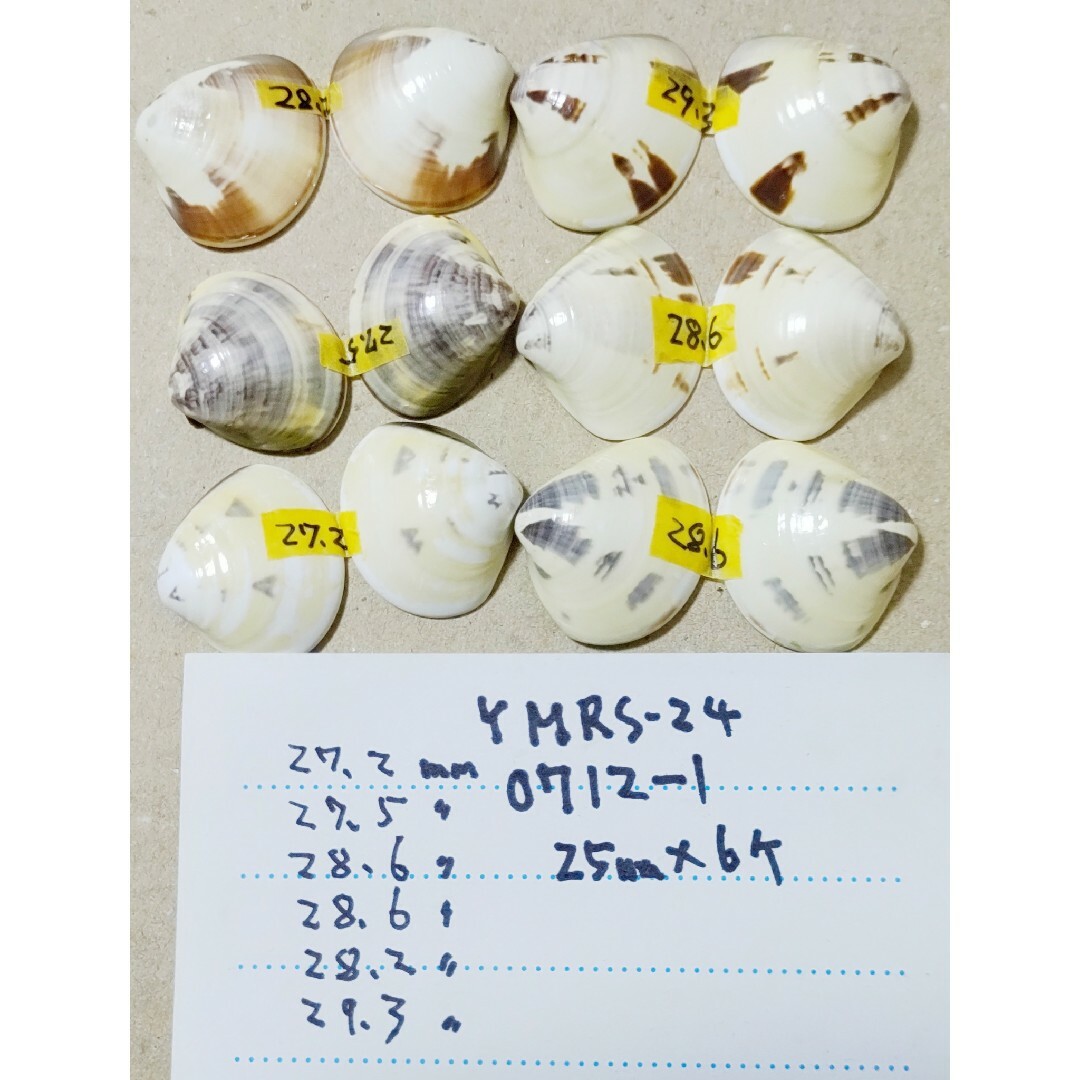 28.2
29.3
27.5
28.6
27.2
28.6
YMRS-24
27.2 mm
0712-1
27.5 〃
28.6 〃
25mm×6ケ
28.6 〃
28.2 〃
29.3 〃